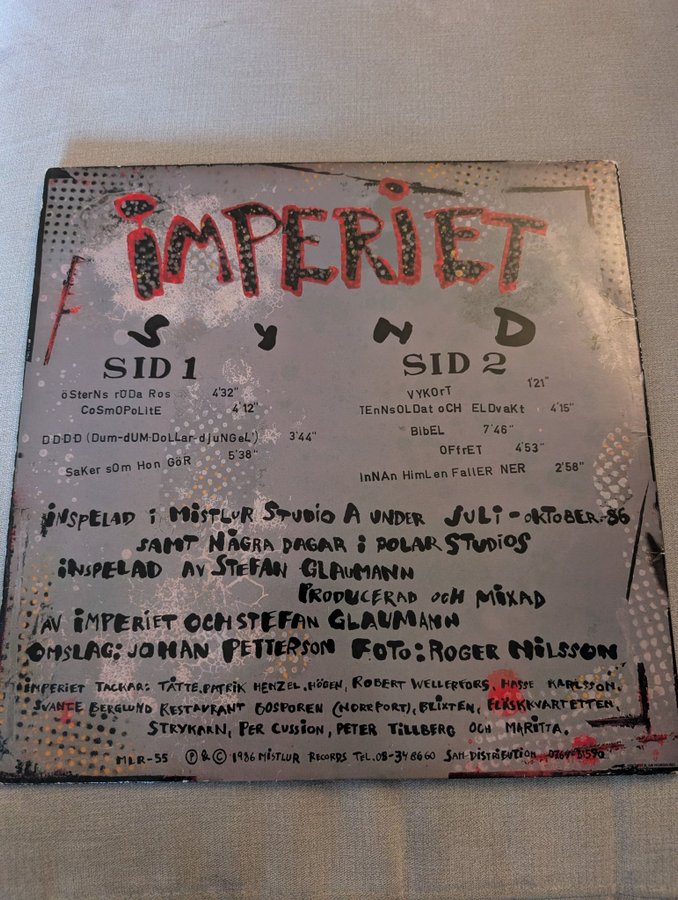 iMPERiET
SYND
SID 1
öSterNs röDa Ros 4'32"
CoSmOPoLitE 4'12"
D D D D (Dum-dUM-DoLLar-djuNGeL') 3'44"
SaKer sOm Hon GöR 5'38"
SID 2
VYKOrT 1'21"
TEnNsOLDat oCH ELDvaKt 4'15"
BibEL 7'46"
OFfrET 4'53"
InNAn HimLen FallER NER 2'58"
iNSPELAD i MiSTLUR STUDiO A UNDER JULi-OKTOBER-86
SAMT NÅGRA DAGAR i POLAR STUDiOS
iNSPELAD AV STEFAN GLAUMANN
PRODUCERAD OCH MiXAD
AV iMPERiET OCH STEFAN GLAUMANN
OMSLAG: JOHAN PETTERSON FOTO: ROGER NiLSSON
iMPERiET TACKAR: TÅTTE, PATRiK HENZEL, HÖGEN, ROBERT WELLERFORS, HASSE KARLSSON,
SVANTE BERGLUND RESTAURANT BOSPOREN (NORRPORT), BLiXTEN, FLÄSKKVARTETTEN,
STRYKARN, PER CUSSiON, PETER TiLLBERG OCH MARiTTA.
MLR-55 Ⓟ & © 1986 MiSTLUR RECORDS TEL. 08-34 86 60 SAM-DiSTRiBUTiON 0764-81590